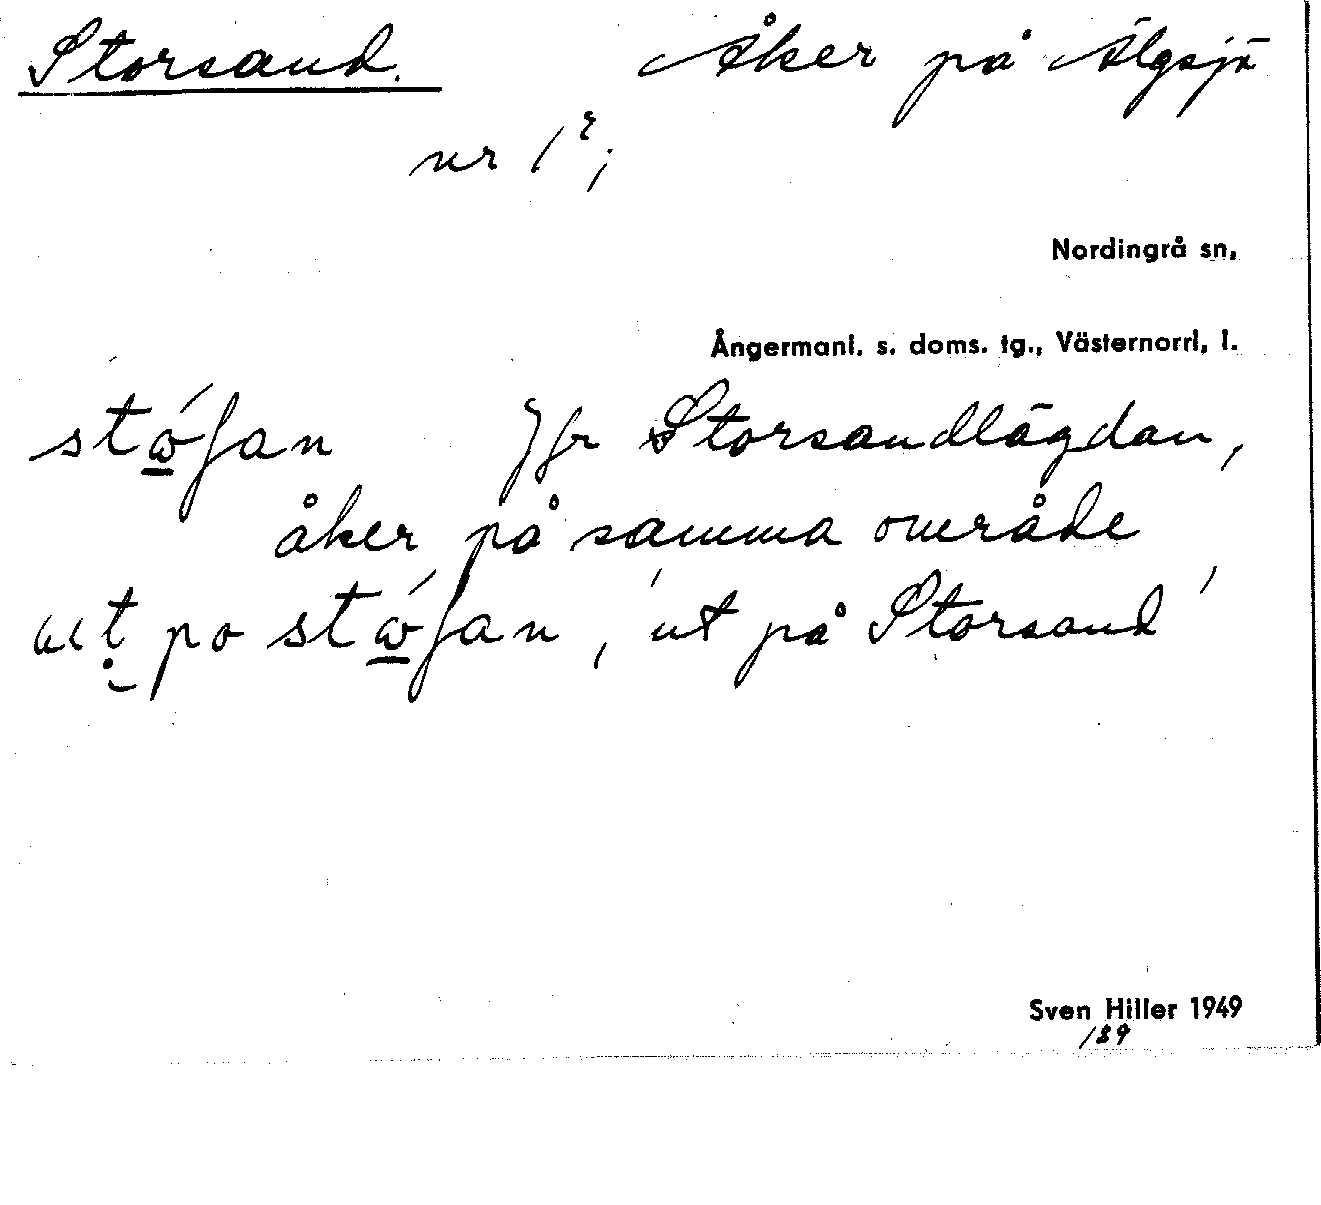 Storsand. Åker på Älgsjö
nr 1²;
Nordingrå sn,
Ångermanl. s. doms. tg., Västernorrl, l.
Jfr Storsandlägdan,
åker på samma område
po , 'ut på Storsand'
Sven Hiller 1949
189